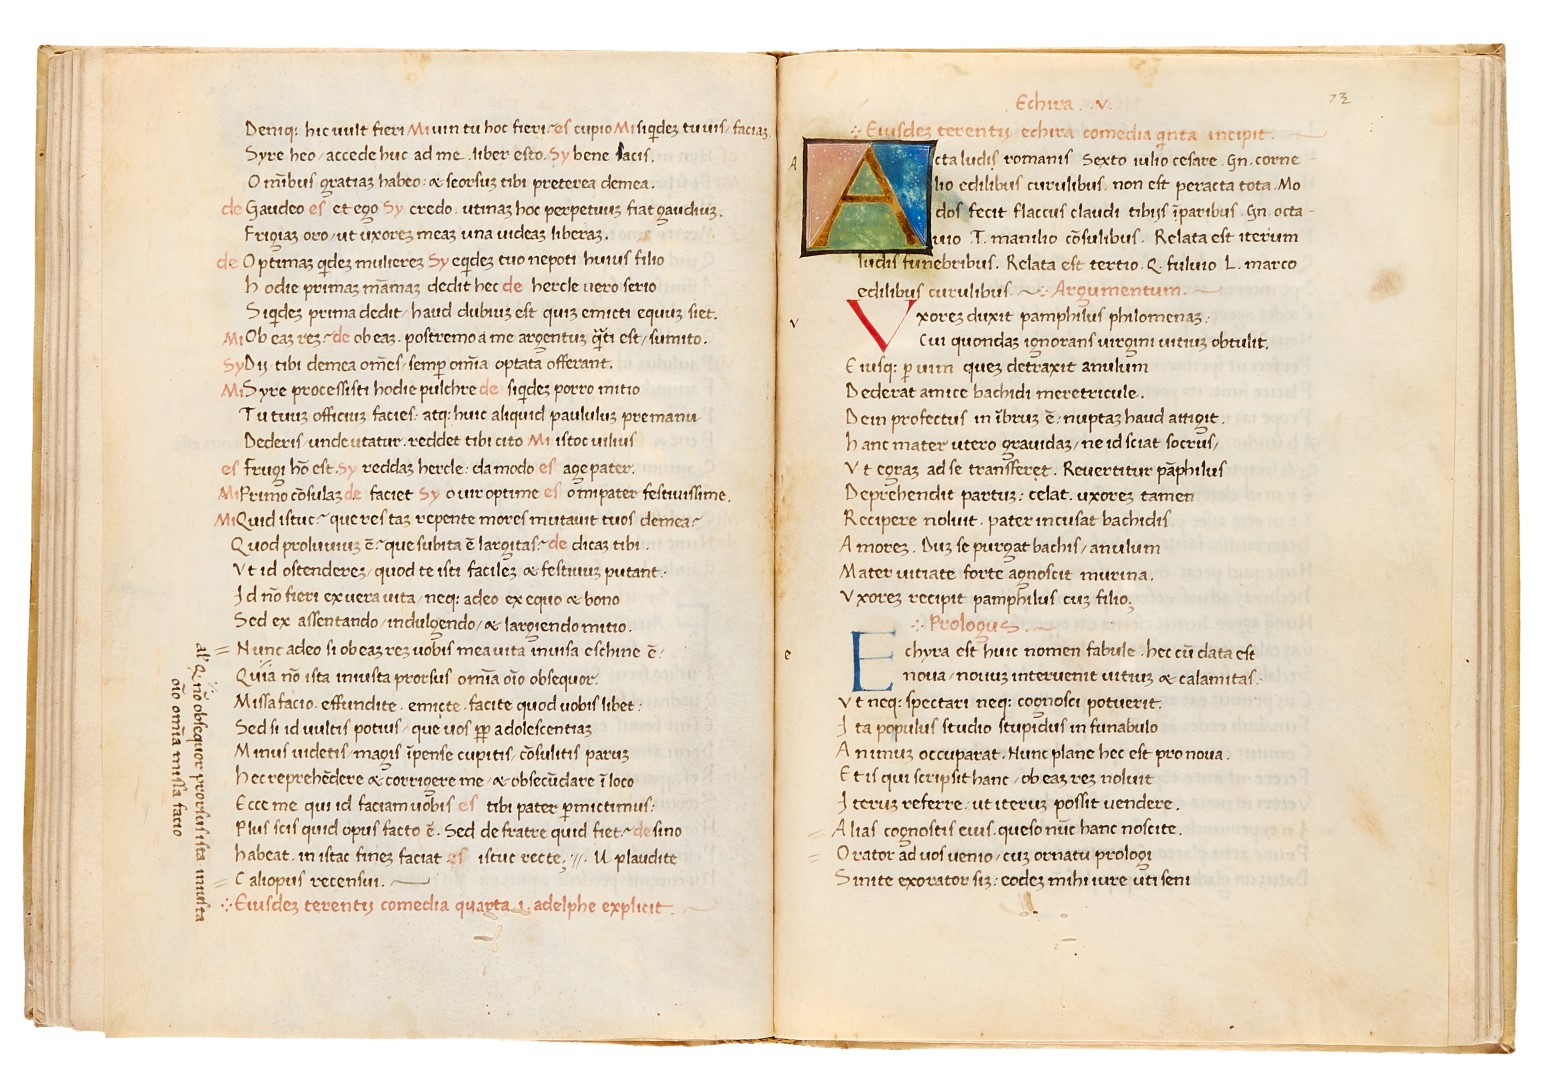 Deniq: hic uult fieri Mi uin tu hoc fieri es cupio Mi siqdeꝫ tu uis / faciaꝫ
Syre heo / accede huc ad me . liber esto. Sy bene facis.
Om̄ibus gratiaꝫ habeo : & seorsuꝫ tibi preterea demea .
de Gaudeo es et ego Sy credo . utinaꝫ hoc perpetuuꝫ fiat gaudiuꝫ.
Frigiaꝫ oro / ut uxoreꝫ meaꝫ una uideaꝫ liberaꝫ.
de Optimaꝫ qdeꝫ muliereꝫ Sy eqdeꝫ tuo nepoti huius filio
hodie primaꝫ māmaꝫ dedit hec de hercle uero serio
Siqdeꝫ prima dedit / haud dubiuꝫ est quiꝫ emicti equuꝫ siet.
Mi Ob eaꝫ reꝫ de ob eaꝫ . postremo a me argentuꝫ qti est / sumito .
Sy Dij tibi demea om̄es / semp om̄ia optata offerant.
Mi Syre processisti hodie pulchre de siqdeꝫ porro mitio
Tu tuuꝫ officiuꝫ facies : atq: huic aliquid paululuꝫ pre manu
Dederis / unde utatur . reddet tibi cito Mi istoc uilius
es Frugi hō est. Sy reddaꝫ hercle : da modo es age pater.
Mi Primo cōsulaꝫ de faciet Sy o uir optime es o mi pater festiuissime .
Mi Quid istuc : que res taꝫ repente mores mutauit tuos demea
Quod proluuiuꝫ ē : que subita ē largitas : de dicaꝫ tibi .
Vt id ostendereꝫ / quod te isti facileꝫ & festiuuꝫ putant .
Id nō fieri ex uera uita / neq: adeo ex equo & bono
Sed ex assentando / indulgendo / & largiendo mitio .
Nunc adeo si ob eaꝫ reꝫ uobis mea uita inuisa eschine ē
Quia nō ista iniusta prorsus om̄ia oīo obsequor
Missa facio . effundite . emicte . facite quod uobis libet :
Sed si id uultis potius / que uos pp adolescentiaꝫ
Minus uidetis / magis īpense cupitis / cōsulitis paruꝫ
hec reprehēdere & corrigere me / & obsecūdare ī loco
Ecce me qui id faciam uobis es tibi pater pmictimus :
Plus scis quid opus facto ē. Sed de fratre quid fiet de sino
habeat . in istac fineꝫ faciat es istuc recte . U plaudite
Caliopus recensui.
Eiusdeꝫ terentij comedia quarta i. adelphe explicit
al' Q nō obsequor prorsus ista iniusta
oīo om̄ia missa facio
Echira . v.
73
Eiusdeꝫ terentij echira comedia qnta incipit .
A
Acta ludis romanis Sexto iulio cesare . Gn. corne
lio edilibus curulibus . non est peracta tota . Mo
dos fecit flaccus claudi tibijs īparibus . Gn. octa
uio T. manilio cōsulibus . Relata est iterum
ludis funebribus . Relata est tertio . Q. fuluio L. marco
edilibus curulibus . Argumentum .
v
Vxoreꝫ duxit pamphilus philomenaꝫ :
Cui quondaꝫ ignorans uirgini uitiuꝫ obtulit.
Eiusq: p uim queꝫ detraxit anulum
Dederat amice bachidi meretricule .
Dein profectus in ībruꝫ ē : nuptaꝫ haud attigit .
hanc mater utero grauidaꝫ / ne id sciat socrus /
Vt egraꝫ ad se transferet . Reuertitur pāphilus
Deprehendit partuꝫ : celat . uxoreꝫ tamen
Recipere noluit . pater incusat bachidis
Amoreꝫ . Duꝫ se purgat bachis / anulum
Mater uitiate forte agnoscit murina .
Vxoreꝫ recipit pamphilus cuꝫ filio .
Prologus
e
Echyra est huic nomen fabule . hec cū data est
noua / nouuꝫ interuenit uitiuꝫ & calamitas .
Vt neq: spectari neq: cognosci potuerit .
Ita populus studio stupidus in funabulo
Animuꝫ occuparat . Nunc plane hec est pro noua .
Et is qui scripsit hanc / ob eaꝫ reꝫ noluit
Iteruꝫ referre : ut iteruꝫ possit uendere .
Alias cognostis eius . queso nūc hanc noscite .
Orator ad uos uenio / cuꝫ ornatu prologi
Sinite exorator siꝫ : eodeꝫ mihi iure uti seni